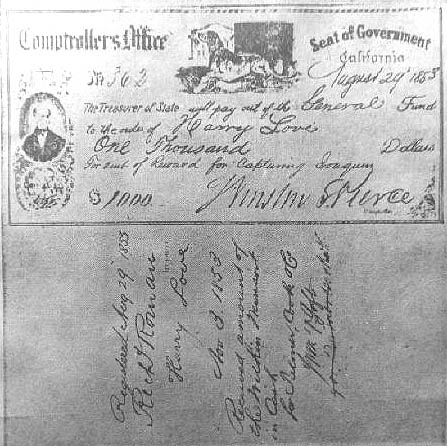 Comptroller's Office
Seat of Government
California
No 362
August 29 1853
The Treasurer of State will pay out of the General Fund
to the order of Harry Love
One Thousand Dollars
For amt of Reward for Capturing Joaquin
$ 1000. Winslow S Pierce
Comptroller
Registered Aug 29 1853
Richd Roman
Harry Love
Nov 3. 1853
Received amount of
the within Warrant
in Cash